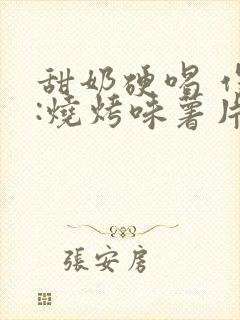 甜奶硬唱
:燒烤味薯片
張安房